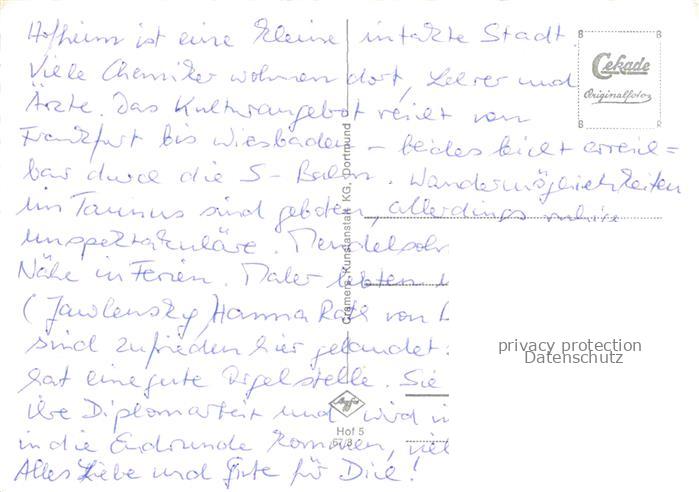 Hofheim ist eine kleine intakte Stadt.
Viele Chemiker wohnen dort, Lehrer und
Ärzte. Das Kulturangebot reicht von
Frankfurt bis Wiesbaden – beides leicht erreich=
bar durch die S-Bahn. Wandermöglichkeiten
im Taunus sind geboten, allerdings ruhige
unspektakuläre. Mendelsohn
Nähe in Ferien. Maler lebten
(Jawlensky, Hanna
sind zufrieden hier gelandet:
hat eine gute Orgelstelle. Sie
ihre Diplomarbeit und wird
in die Endrunde kommen,
Alles Liebe und Gute für Dich!
Cekade
Originalfoto
Cramers Kunstanstalt KG, Dortmund
Agfa
Hof 5
privacy protection
Datenschutz